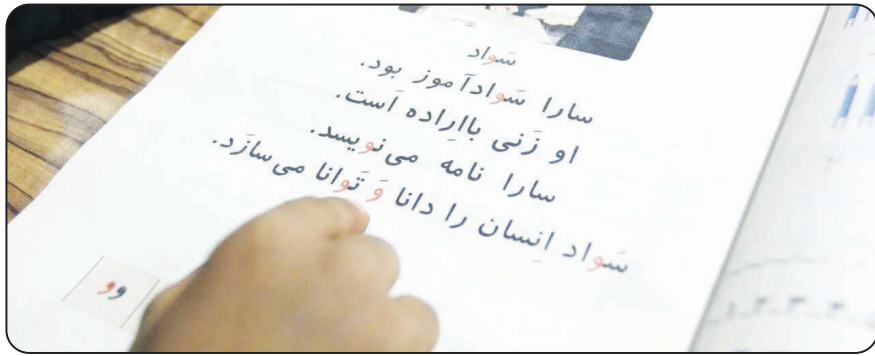 سَواد
سارا سَوادآموز بود.
او زَنی بااِراده اَست.
سارا نامه می‌نویسد.
سَواد اِنسان را دانا وَ تَوانا می‌سازَد.
و و